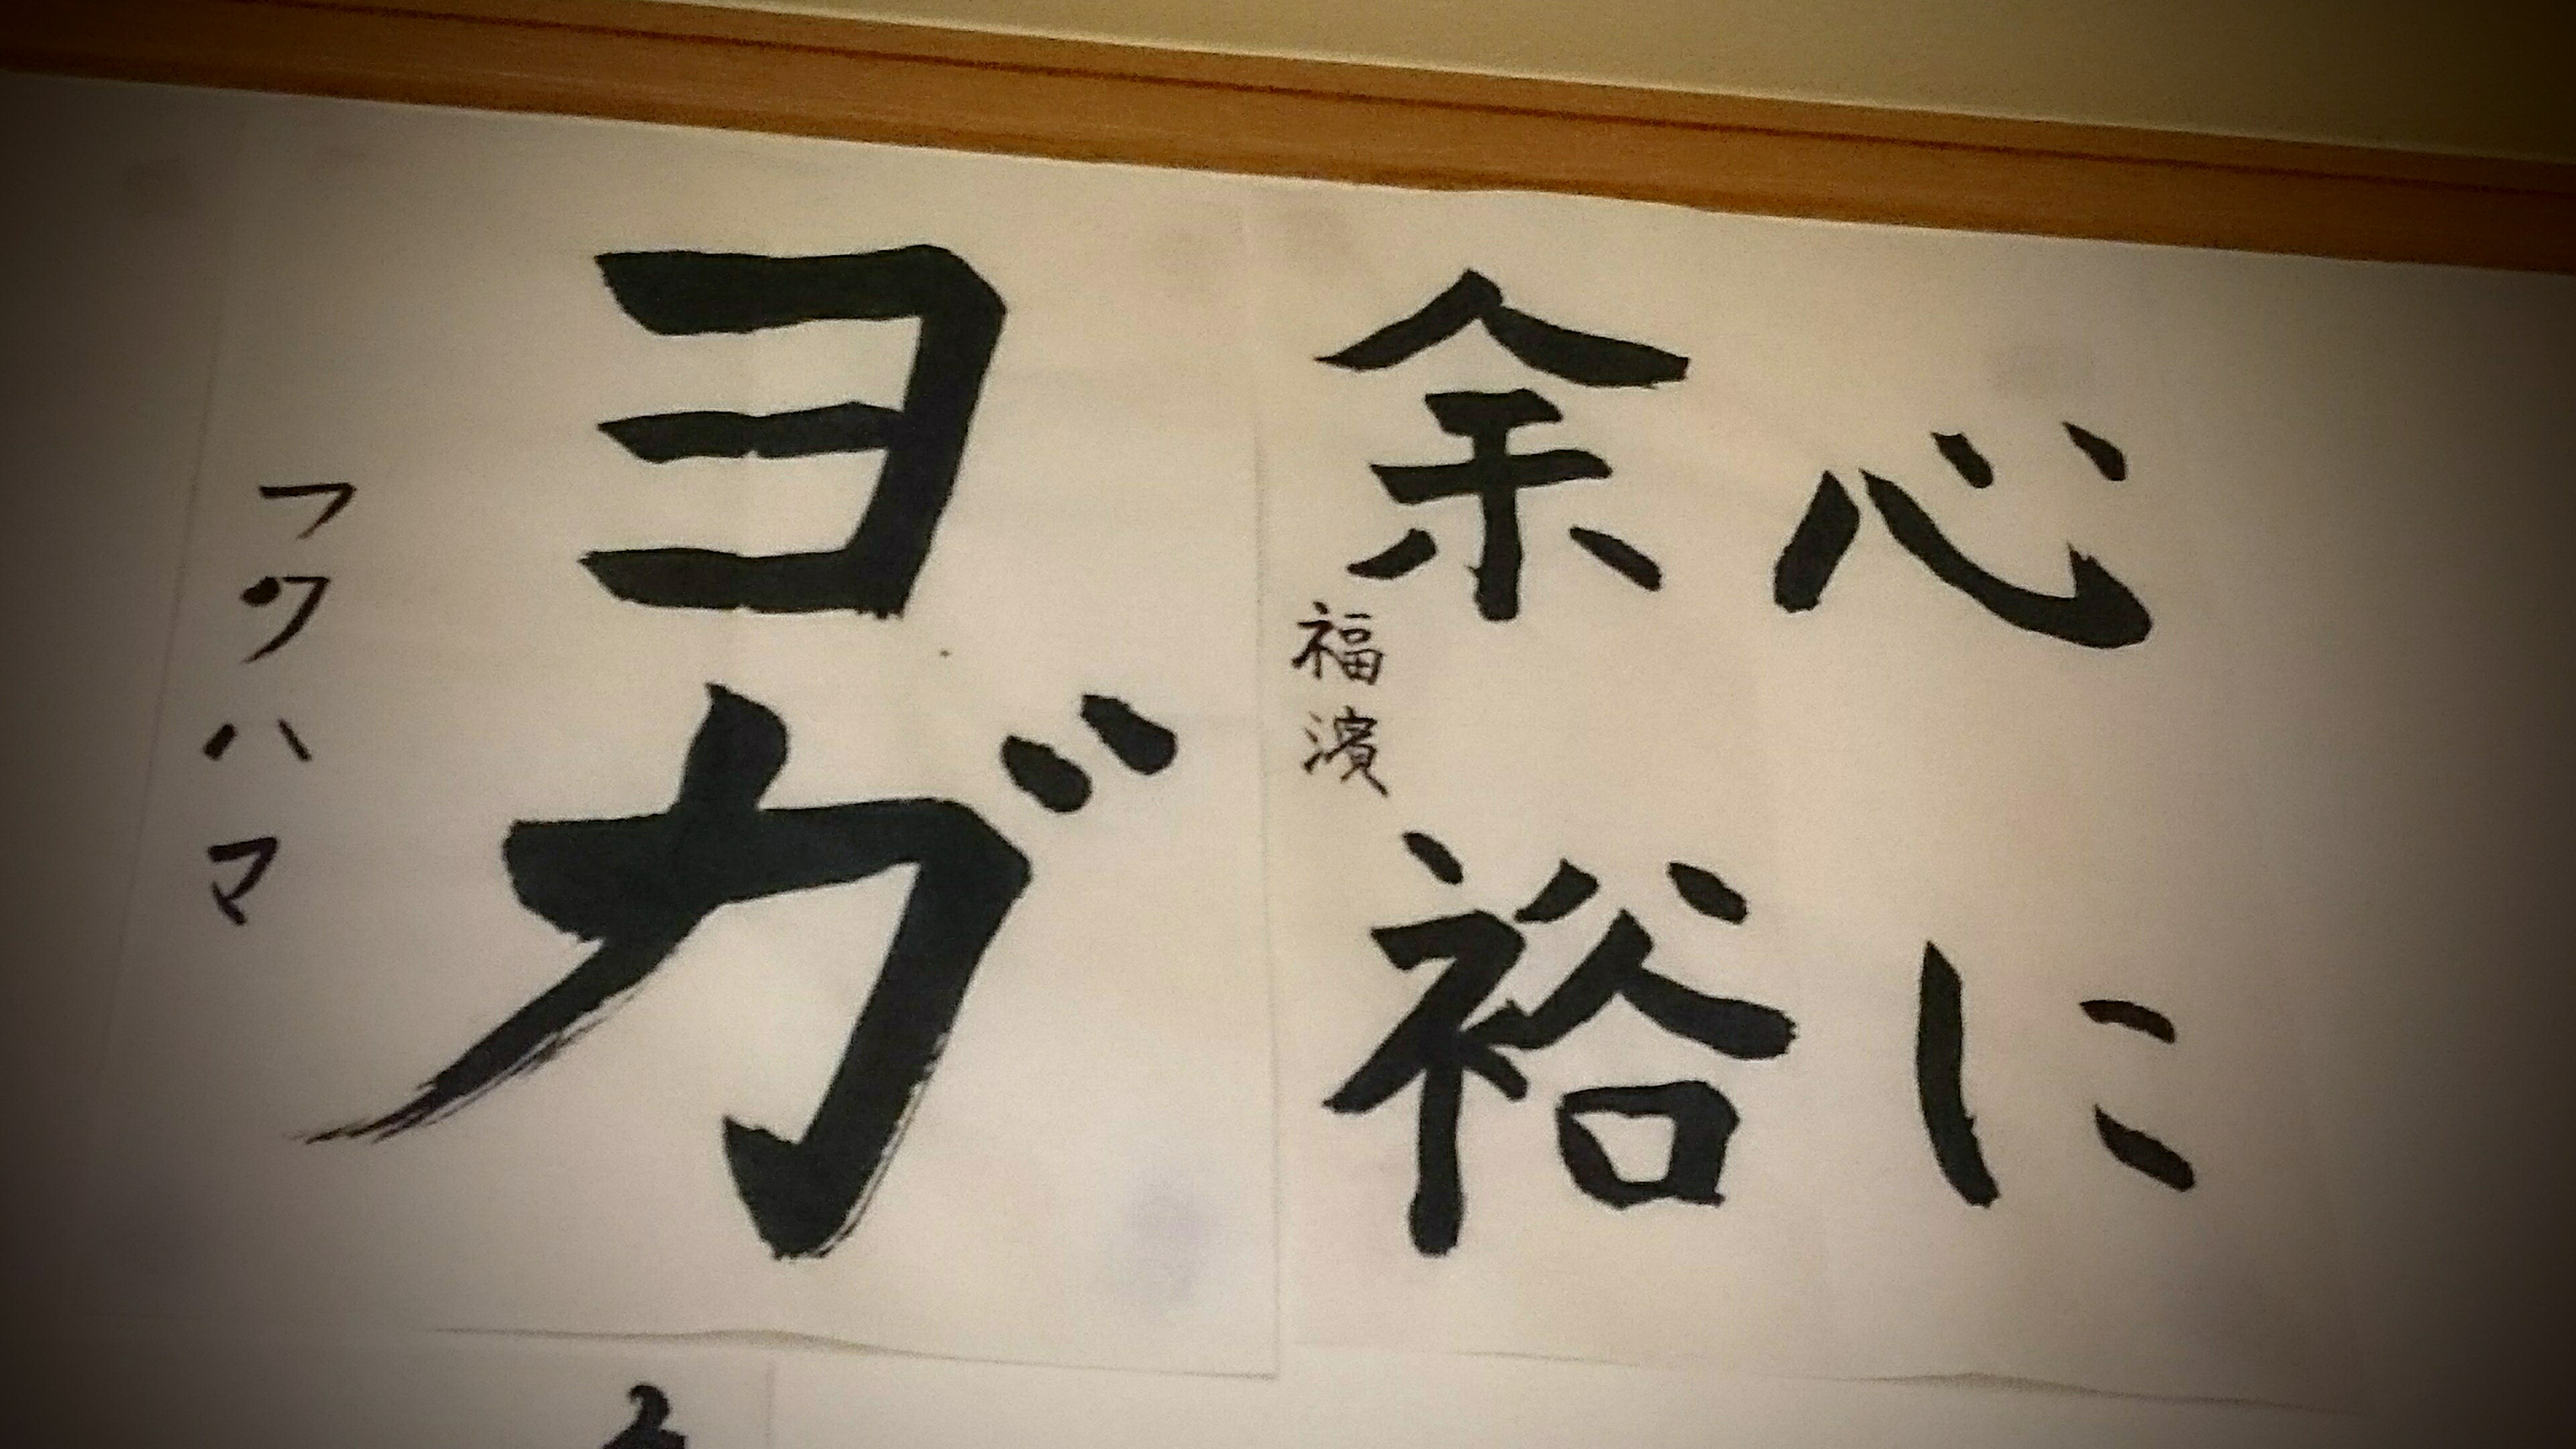 心に
余裕
福濱
ヨガ
フクハマ